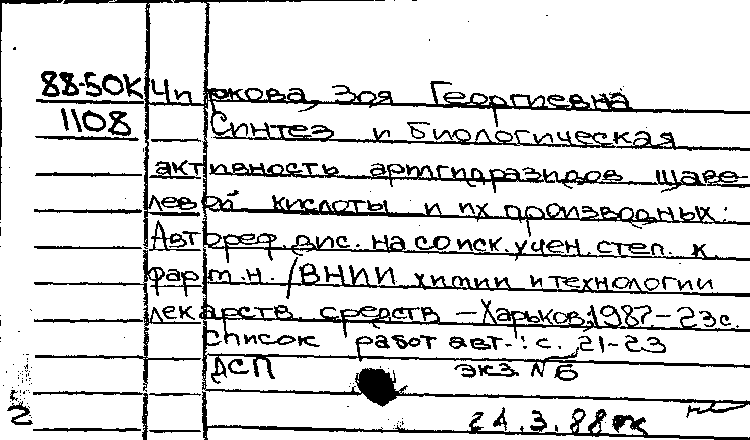 88-50К Чиркова, Зоя Георгиевна
1108 Синтез и биологическая
активность арилгидразидов щаве-
левой кислоты и их производных:
Автореф. дис. на соиск. учен. степ. к.
фарм. н. / ВНИИ химии и технологии
лекарств. средств – Харьков, 1987. – 23 с.
Список работ авт.: с. 21-23
ДСП экз. №6
2 24.3.88